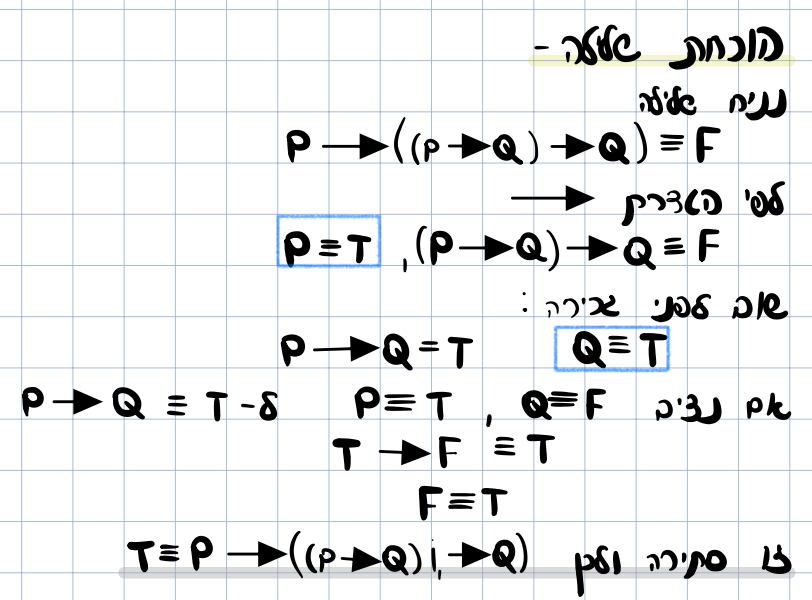 הוכחת שלילה -
נניח שלילה
P → ((P → Q) → Q) ≡ F
לפי הגדרת →
P ≡ T , (P → Q) → Q ≡ F
שוב לפני גרירה :
P → Q = T Q ≡ T
אם נציב P ≡ T , Q ≡ F ל- P → Q ≡ T
T → F ≡ T
F ≡ T
זו סתירה ולכן T ≡ P → ((P → Q) → Q)